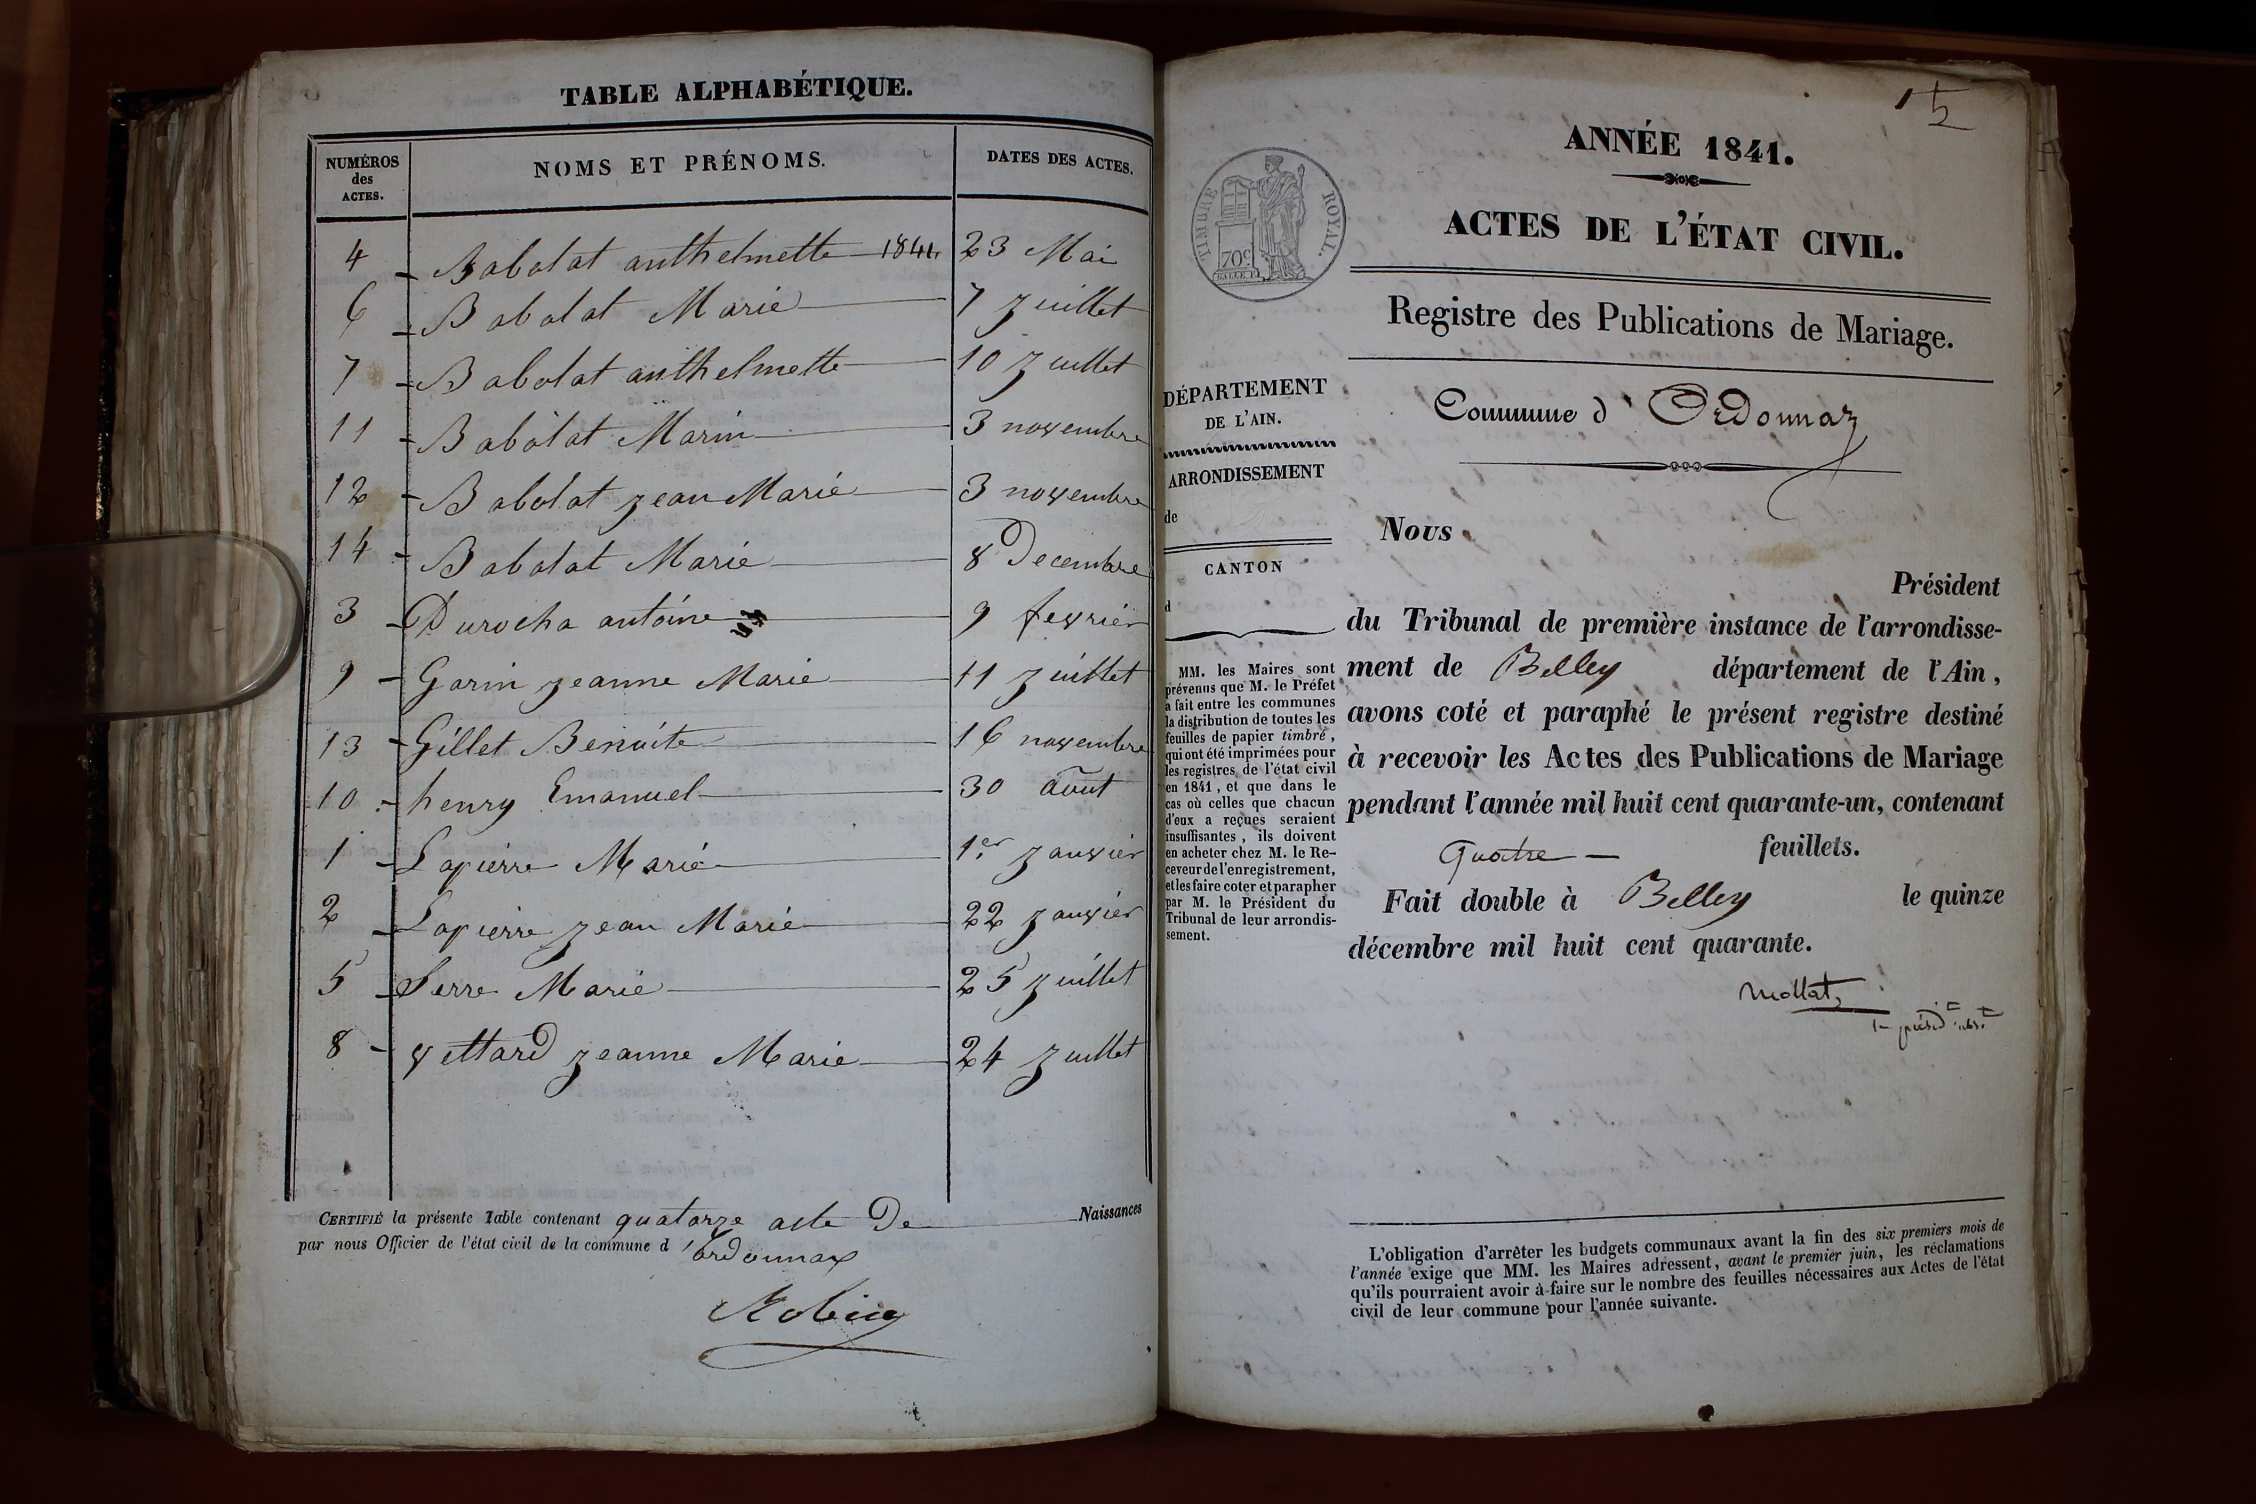 TABLE ALPHABÉTIQUE.
NUMÉROS des ACTES.
NOMS ET PRÉNOMS.
DATES DES ACTES.
4 Babolat anthelmette 1841 23 Mai
6 Babolat Marie 7 Juillet
7 Babolat anthelmette 10 Juillet
11 Babolat Marin 3 novembre
12 Babolat Jean Marie 3 novembre
14 Babolat Marie 8 Decembre
3 Durocha antoine 9 fevrier
9 Garin Jeanne Marie 11 Juillet
13 Gillet Benoite 16 novembre
10 henry Emanuel 30 aout
1 Lapierre Marie 1er Janvier
2 Lapierre Jean Marie 22 Janvier
5 Serre Marie 25 Juillet
8 vettard Jeanne Marie 24 Juillet
CERTIFIÉ la présente Table contenant quatorze acte De Naissances
par nous Officier de l'état civil de la commune d'ordonnax
15
ANNÉE 1841.
ACTES DE L'ÉTAT CIVIL.
TIMBRE ROYAL.
70c
Registre des Publications de Mariage.
DÉPARTEMENT
DE L'AIN.
ARRONDISSEMENT
de
CANTON
d
MM. les Maires sont
prévenus que M. le Préfet
a fait entre les communes
la distribution de toutes les
feuilles de papier timbré,
qui ont été imprimées pour
les registres de l'état civil
en 1841, et que dans le
cas où celles que chacun
d'eux a reçues seraient
insuffisantes, ils doivent
en acheter chez M. le Re-
ceveur de l'enregistrement,
et les faire coter et parapher
par M. le Président du
Tribunal de leur arrondis-
sement.
Commune d'Ordonnaz
Nous
Président
du Tribunal de première instance de l'arrondisse-
ment de Belley département de l'Ain,
avons coté et paraphé le présent registre destiné
à recevoir les Actes des Publications de Mariage
pendant l'année mil huit cent quarante-un, contenant
Quatre feuillets.
Fait double à Belley le quinze
décembre mil huit cent quarante.
Mollat
L'obligation d'arrêter les budgets communaux avant la fin des six premiers mois de
l'année exige que MM. les Maires adressent, avant le premier juin, les réclamations
qu'ils pourraient avoir à faire sur le nombre des feuilles nécessaires aux Actes de l'état
civil de leur commune pour l'année suivante.